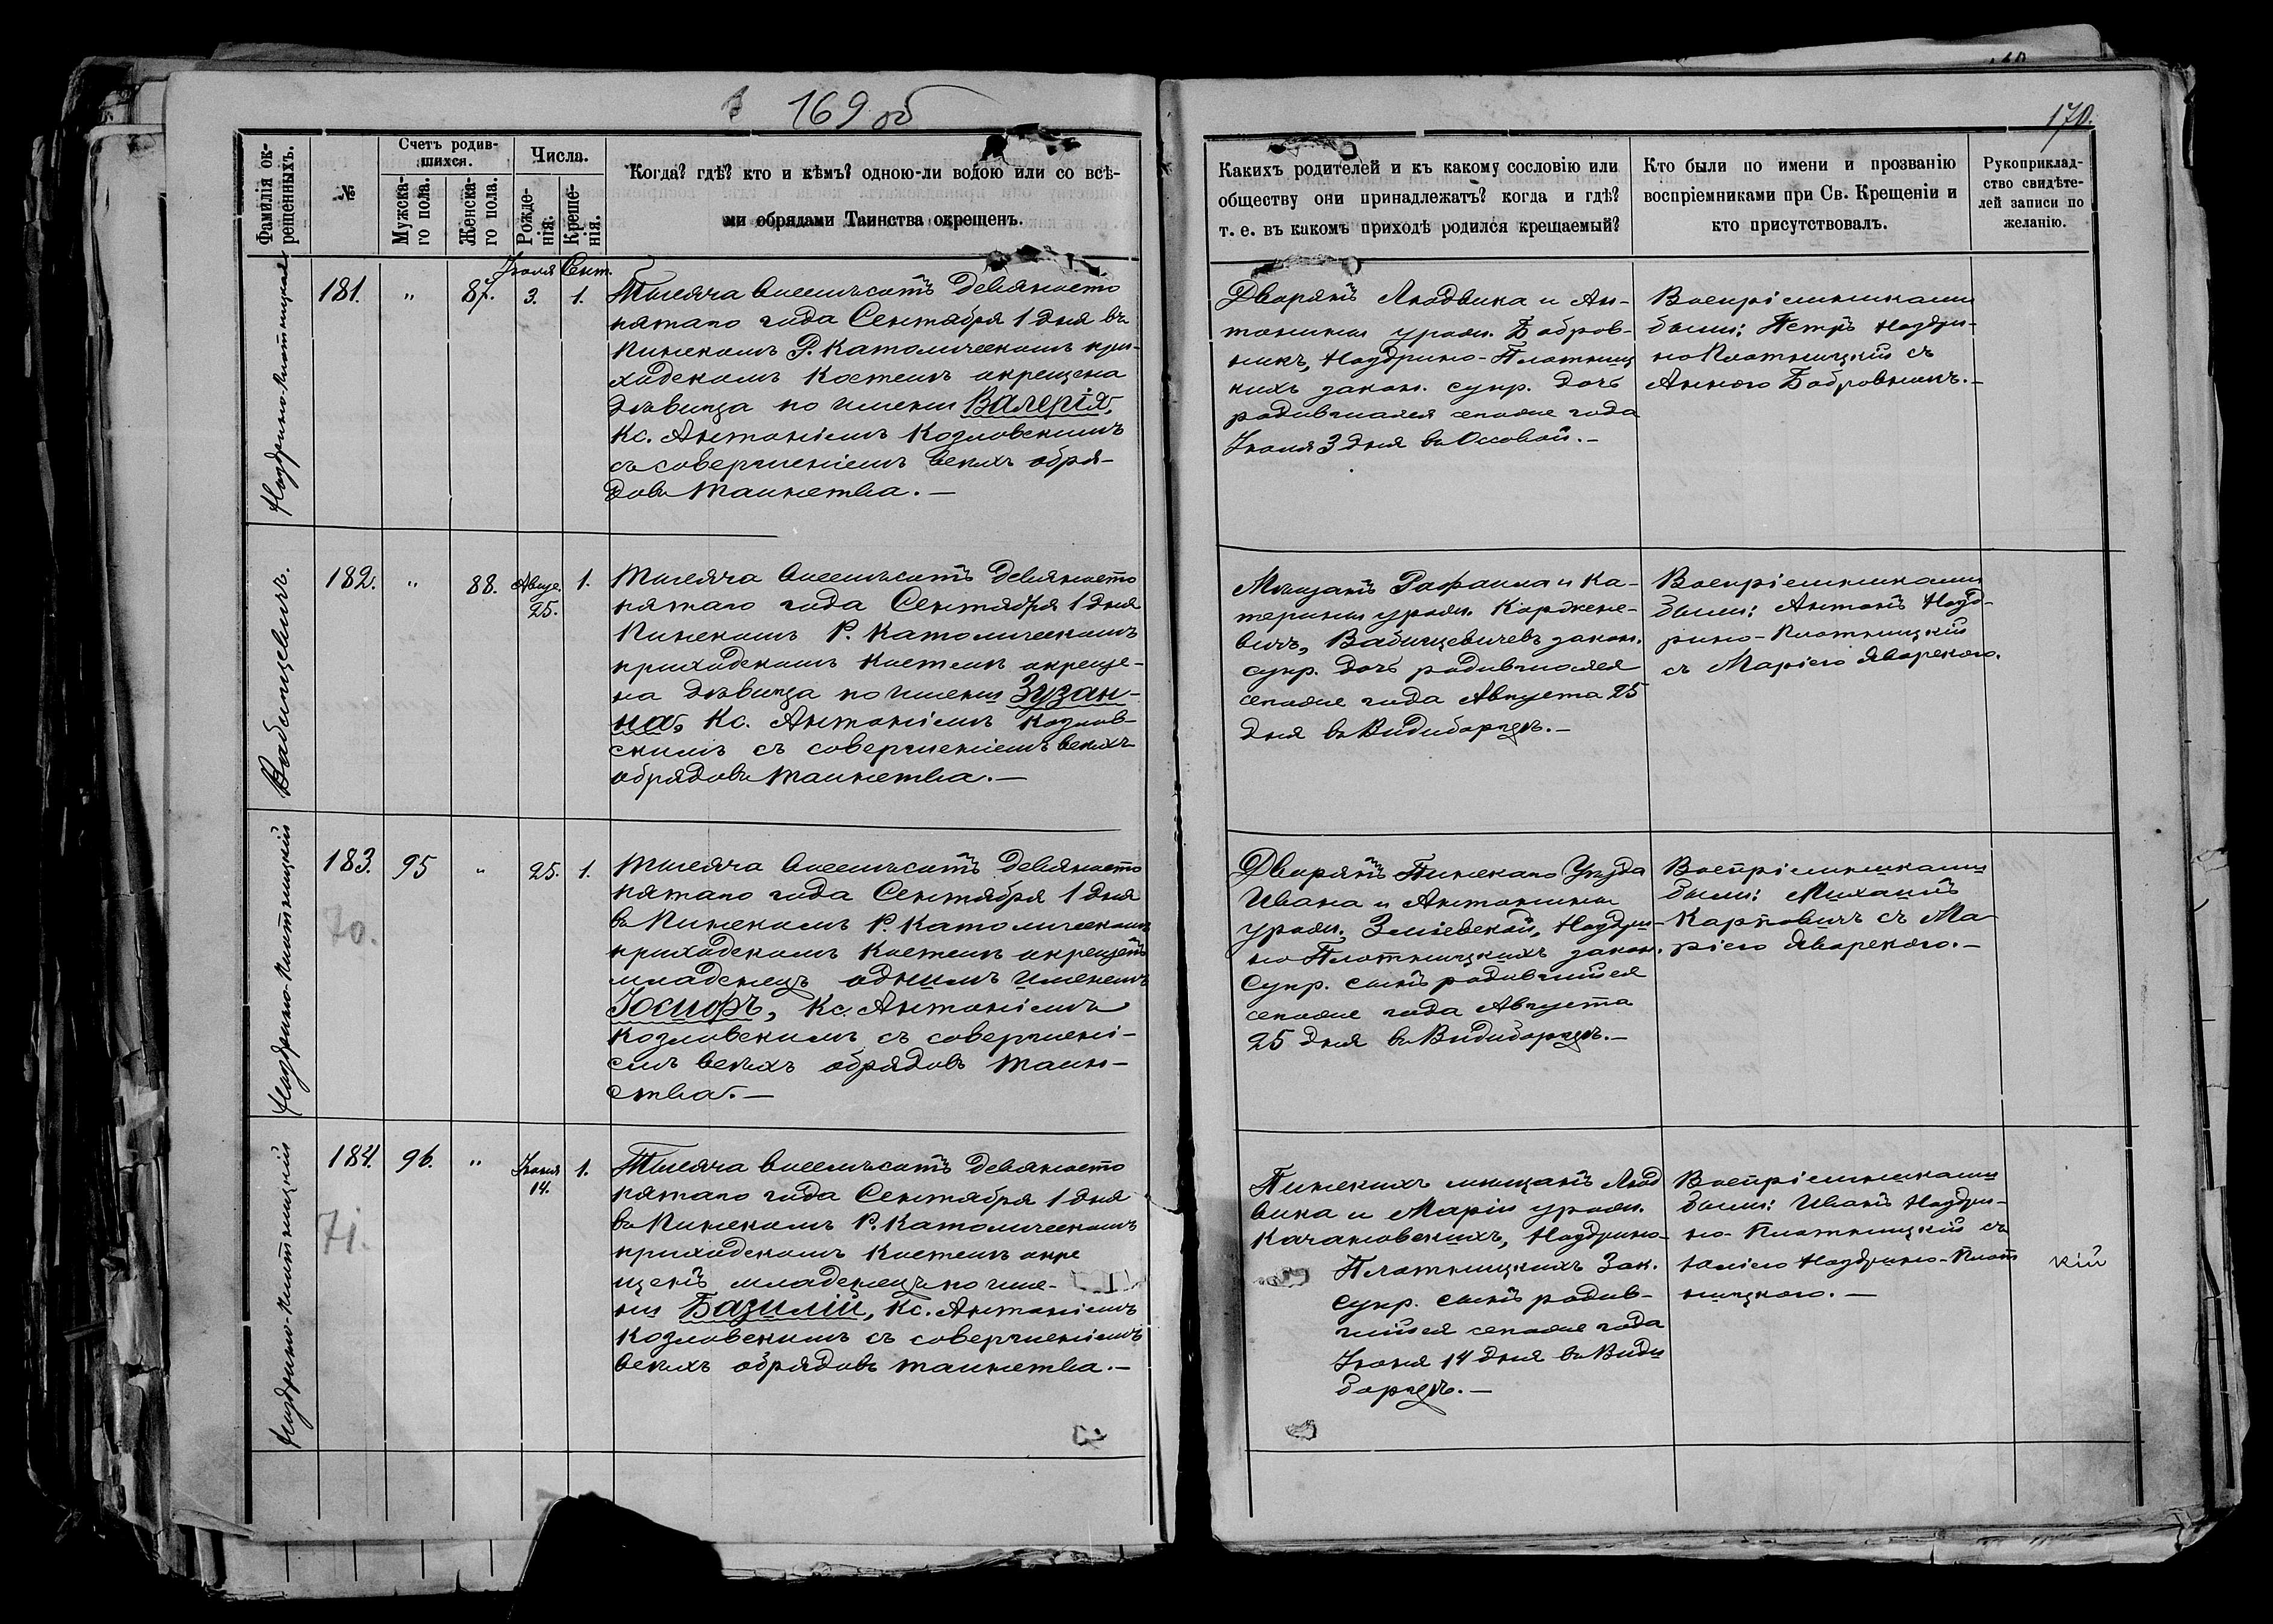 169 об
170.
Фамилія ок-
решенныхъ.
№
Счетъ родив-
шихся.
Мужска-
го пола.
Женска-
го пола.
Числа.
Рожде-
нія.
Креще-
нія.
Когда? гдѣ? кто и кѣмъ? одною-ли водою или со всѣ-
ми обрядами Таинства окрещенъ.
Какихъ родителей и къ какому сословію или
обществу они принадлежатъ? когда и гдѣ?
т. е. въ какомъ приходѣ родился крещаемый?
Кто были по имени и прозванію
воспріемниками при Св. Крещеніи и
кто присутствовалъ.
Рукоприклад-
ство свидѣте-
лей записи по
желанію.
Ноздрино-Плотницкая
181.
"
87.
Іюля
3.
Сент.
1.
Тысяча восемьсотъ девяносто
пятаго года Сентября 1 дня въ
Пинскомъ Р. Католическомъ при-
ходскомъ костелѣ окрещена
дѣвица по имени Валерія,
Кс. Антоніемъ Козловскимъ
съ совершеніемъ всѣхъ обря-
довъ таинства. —
Дворянъ Людвика и Ан-
тонины урожд. Бобров-
никъ, Ноздрино-Плотниц
кихъ закон. супр. дочь
родившаяся сего же года
Іюля 3 дня въ Оссовой. —
Воспріемниками
были: Петръ Ноздри-
но Плотницкій съ
Анною Бобровникъ. —
Вабищевичъ.
182.
"
88.
Авгус.
25.
1.
Тысяча восемьсотъ девяносто
пятаго года Сентября 1 дня
Пинскомъ Р. Католическомъ
приходскомъ костелѣ окреще-
на дѣвица по имени Зузан-
на, Кс. Антоніемъ Козлов-
скимъ съ совершеніемъ всѣхъ
обрядовъ таинства. —
Мѣщанъ Рафаила и Ка-
терины урожд. Коржене-
вичъ, Вабищевичевъ закон.
супр. дочь родившаяся
сего же года Августа 25
дня въ Видиборцѣ. —
Воспріемниками
были: Антонъ Нозд-
рино-Плотницкій
съ Маріею Яворскою.
Ноздрино-Плотницкій
183.
70.
95
"
25.
1.
Тысяча восемьсотъ девяносто
пятаго года Сентября 1 дня
въ Пинскомъ Р. Католическомъ
приходскомъ костелѣ окрещенъ
младенецъ однимъ именемъ
Іосифъ, Кс. Антоніемъ
Козловскимъ съ совершені-
емъ всѣхъ обрядовъ таин-
ства. —
Дворянъ Пинскаго Уѣзда
Ивана и Антонины
урожд. Зміевской, Ноздри-
но Плотницкихъ закон.
Супр. сынъ родившійся
сего же года Августа
25 дня въ Видиборцѣ. —
Воспріемниками
были: Михаилъ
Карповичъ съ Ма-
ріею Яворскою. —
Ноздрино-Плотницкій
184.
71.
96.
"
Іюня
14.
1.
Тысяча восемьсотъ девяносто
пятаго года Сентября 1 дня
въ Пинскомъ Р. Католическомъ
приходскомъ костелѣ окре
щенъ младенецъ по име-
ни Базилій, Кс. Антоніемъ
Козловскимъ съ совершеніемъ
всѣхъ обрядовъ таинства. —
Пинскихъ мѣщанъ Люд
вика и Маріи урожд.
Качановскихъ, Ноздрино-
Плотницкихъ Зак.
Супр. сынъ родив-
шійся сего же года
Іюня 14 дня въ Види
борцѣ. —
Воспріемниками
были: Иванъ Ноздри-
но-Плотницкій съ
Юліею Ноздрино-Плот
ницкою. —
кій